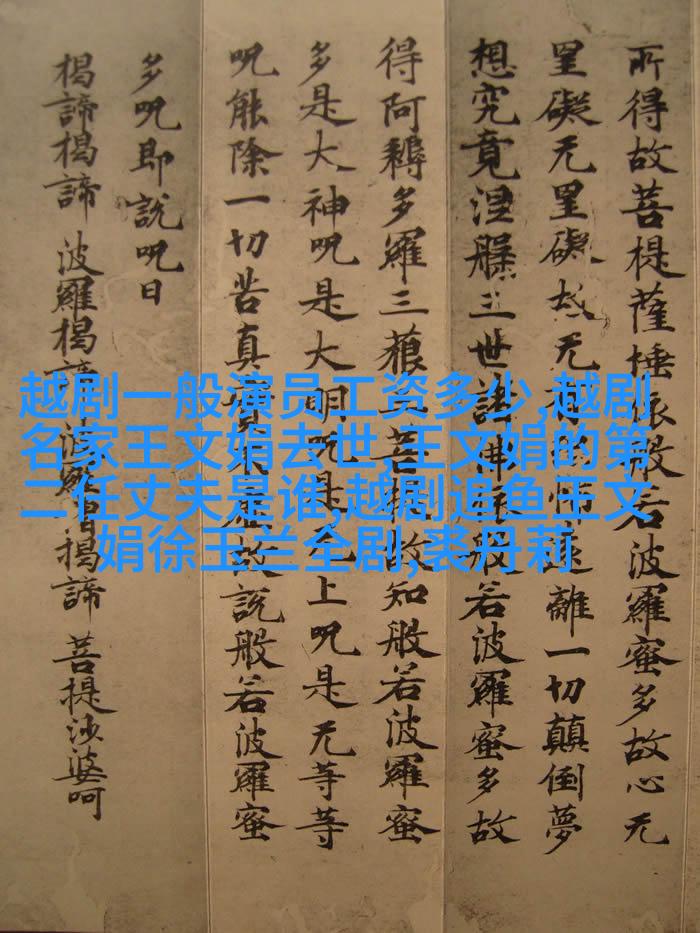 所得故菩提薩埵依般若波羅蜜多故心无
罣礙无罣礙故无有恐怖遠離一切顛倒夢
想究竟涅槃三世諸佛依般若波羅蜜多故
得阿耨多羅三藐三菩提故知般若波羅蜜
多是大神呪是大明呪是无上呪是无等等
呪能除一切苦真實不虛故說般若波羅蜜
多呪即說呪曰
揭諦揭諦 波羅揭諦 波羅僧揭諦 菩提沙婆呵
越剧一般演员工资多少,越剧
名家王文娟去世,王文娟的第
二任丈夫是谁,越剧追鱼王文
娟徐玉兰全剧,裘丹莉